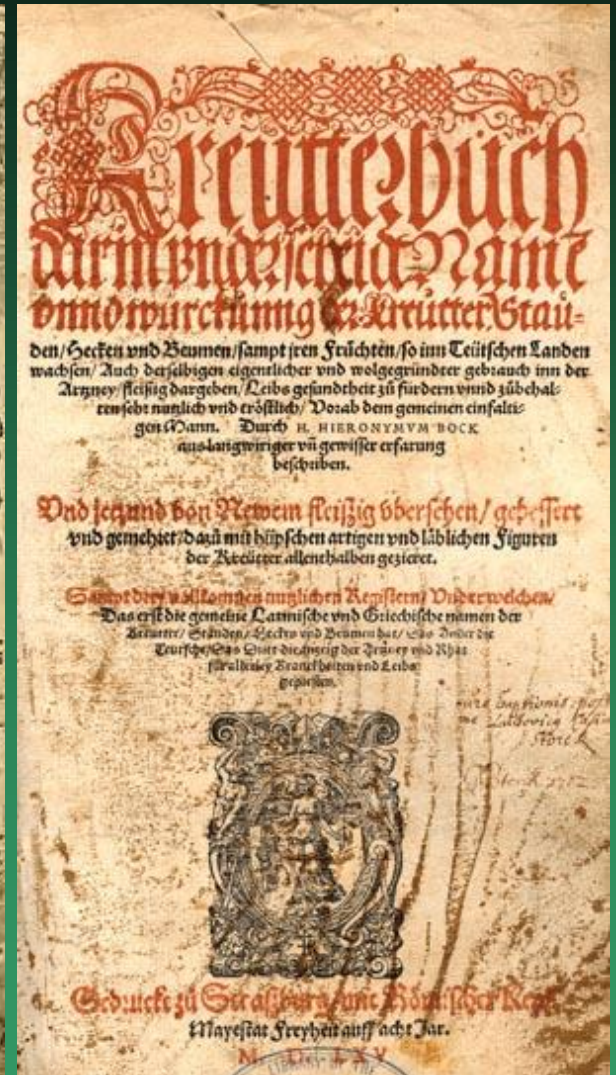 Kreütterbuch
darin vnderscheidt Namē
vnnd würckunng der Kreütter / Stau-
den / Hecken vnd Beumen / sampt jren Früchten / so inn Teütschen Landen
wachsen / Auch derselbigen eigentlicher vnd wolgegründter gebrauch inn der
Artzney / fleißig dargeben / Leibs gesundtheit zů fürdern vnnd zůbehal-
ten sehr nutzlich vnd tröstlich / Vorab dem gemeinen einfalti-
gen Mann. Durch H. HIERONYMVM BOCK
aus langwiriger vñ gewisser erfarung
beschriben.
Vnd jetzund von Newem fleißig vbersehen / gebessert
vnd gemehret / dazů mit hüpschen artigen vnd läblichen Figuren
der Kreütter allenthalben gezieret.
Sampt drey vollkommen nutzlichen Registern / Vnder welchen /
Das erst die gemeine Latinische vnd Griechische namen der
Kreutter / Stauden / Hecken vnd Beumen hat / Das Ander die
Teutsche / Das Dritt die anzeig der Artzney vnd Rhat
für allerley Kranckheiten vnd Leibs
gepresten.
1712
Gedruckt zů Straßburg / mit Römischer Keys.
Mayestat Freyheit auff acht Jar.
M. D. LXV
LIBRARY OF THE